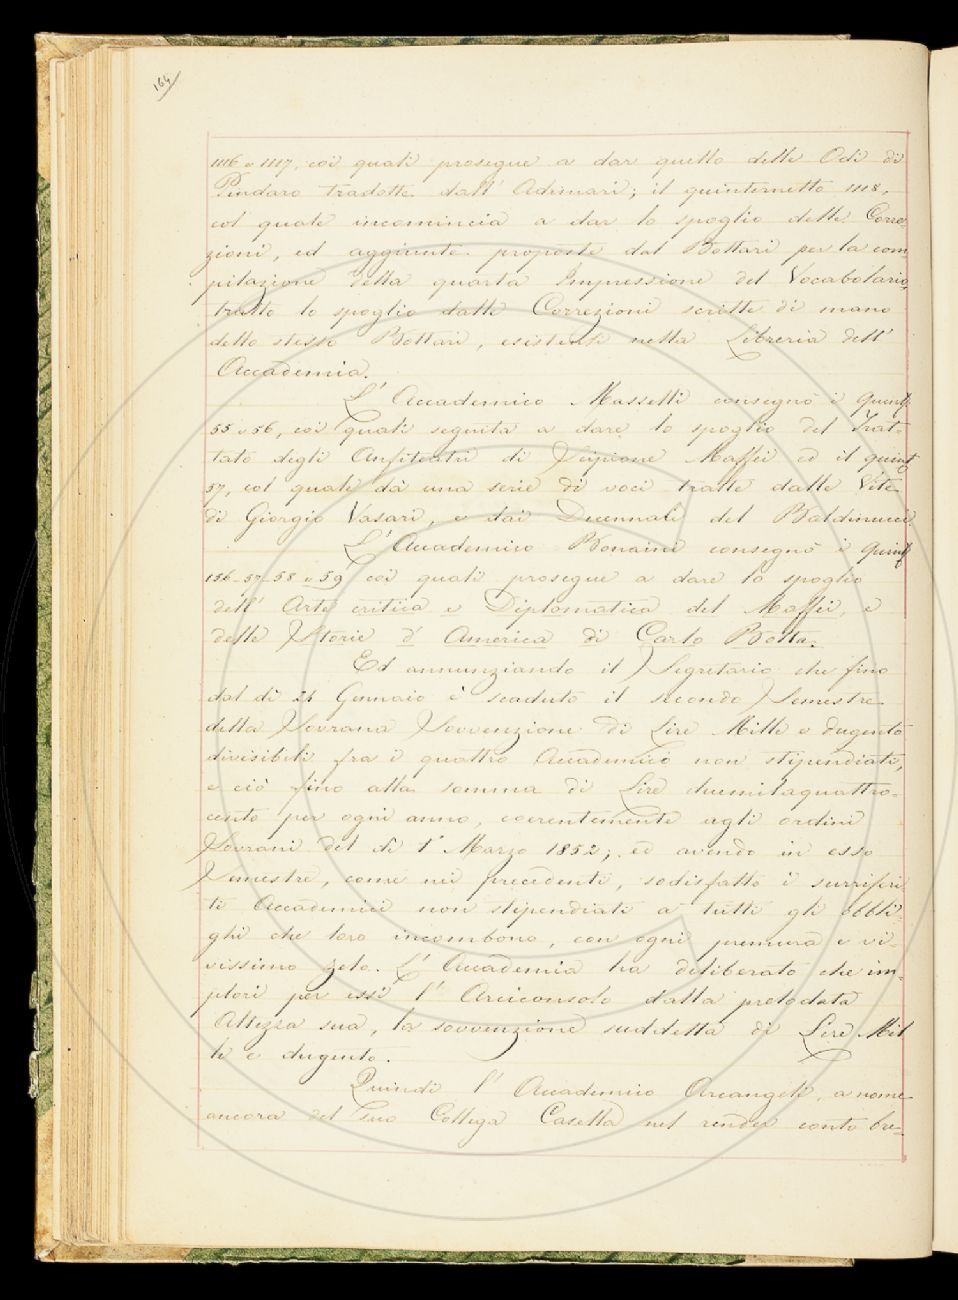 164
1116 e 1117, coi quali prosegue a dar quello delle Odi di
Pindaro tradotte dall' Adimari; il quinternetto 1118,
col quale incomincia a dar lo spoglio delle Corre-
zioni, ed aggiunte proposte dal Bottari per la com-
pilazione della quarta Impressione del Vocabolario,
tratto lo spoglio dalle Correzioni scritte di mano
dello stesso Bottari, esistenti nella Libreria dell'
Accademia.
L' Accademico Masselli consegnò i Quint.
55 e 56, coi quali seguita a dare lo spoglio del Trat-
tato degli Anfiteatri di Scipione Maffei ed il quint.
57, col quale dà una serie di voci tratte dalle Vite
di Giorgio Vasari, e dai Decennali del Baldinucci.
L' Accademico Bonaini consegnò i Quint.
156-57-58 e 59 coi quali prosegue a dare lo spoglio
dell' Arte critica e Diplomatica del Maffei, e
delle Storie d' America di Carlo Botta.
Ed annunziando il Segretario che fino
dal dì 24 Gennaio è scaduto il secondo Semestre
della Sovrana Sovvenzione di Lire Mille e dugento
divisibili fra i quattro Accademici non stipendiati,
e ciò fino alla somma di Lire duemilaquattro-
cento per ogni anno, coerentemente agli ordini
Sovrani del dì 1° Marzo 1852; ed avendo in esso
Semestre, come nei precedenti, sodisfatto i surriferi
ti Accademici non stipendiati a tutti gli obbli-
ghi che loro incombono, con ogni premura e vi-
vissimo zelo. L' Accademia ha deliberato che im-
plori per essi l' Arciconsolo dalla prelodata
Altezza sua, la sovvenzione suddetta di Lire Mil
le e dugento.
Quindi l' Accademico Arcangeli, a nome
ancora del suo Collega Casella nel render conto bre-